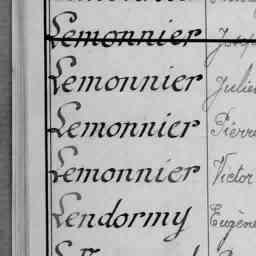 Lemonnier
Lemonnier Julie
Lemonnier Pierre
Lemonnier Victor
Lendormy Eugène